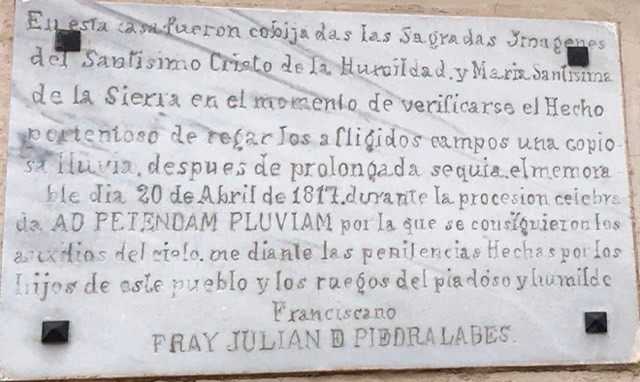 En esta casa fueron cobijadas las Sagradas Ymagenes
del Santisimo Cristo de la Humildad. y Maria Santisima
de la Sierra en el momento de verificarse el Hecho
portentoso de regar los afligidos campos una copio
sa lluvia. despues de prolongada sequia. el memora
ble dia 20 de Abril de 1817. durante la procesion celebra
da AD PETENDAM PLUVIAM por la que se consiguieron los
auxilios del cielo. mediante las penitencias Hechas por los
hijos de este pueblo y los ruegos del piadoso y humilde
Franciscano
FRAY JULIAN D PIEDRALABES.